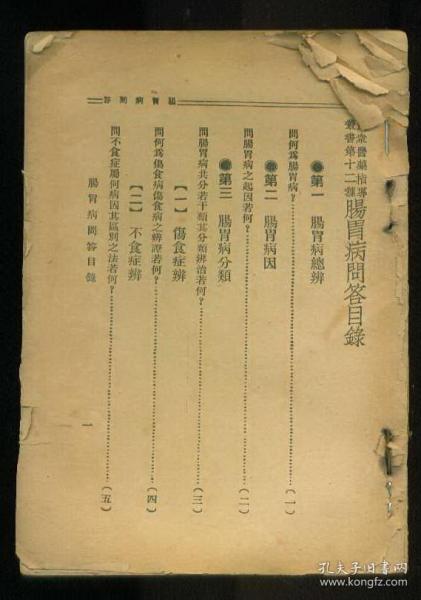 腸胃病問答
衆醫藥指導
叢書第十二種
腸胃病問答目錄
第一　腸胃病總辨
問何爲腸胃病？……(一)
第二　腸胃病因
問腸胃病之起因若何？……(二)
第三　腸胃病分類
問腸胃病共分若干類其分類辨治若何？……(三)
【一】　傷食症辨
問何爲傷食病傷食病之辨證若何？……(四)
【二】　不食症辨
問不食症屬何病因其區別之法若何？……(五)
腸胃病問答目錄
一
孔夫子旧书网
www.kongfz.com